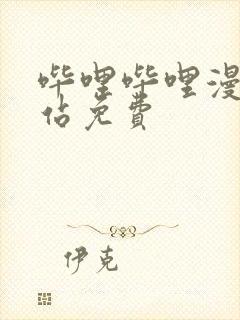 哔哩哔哩漫
佔免費
伊克